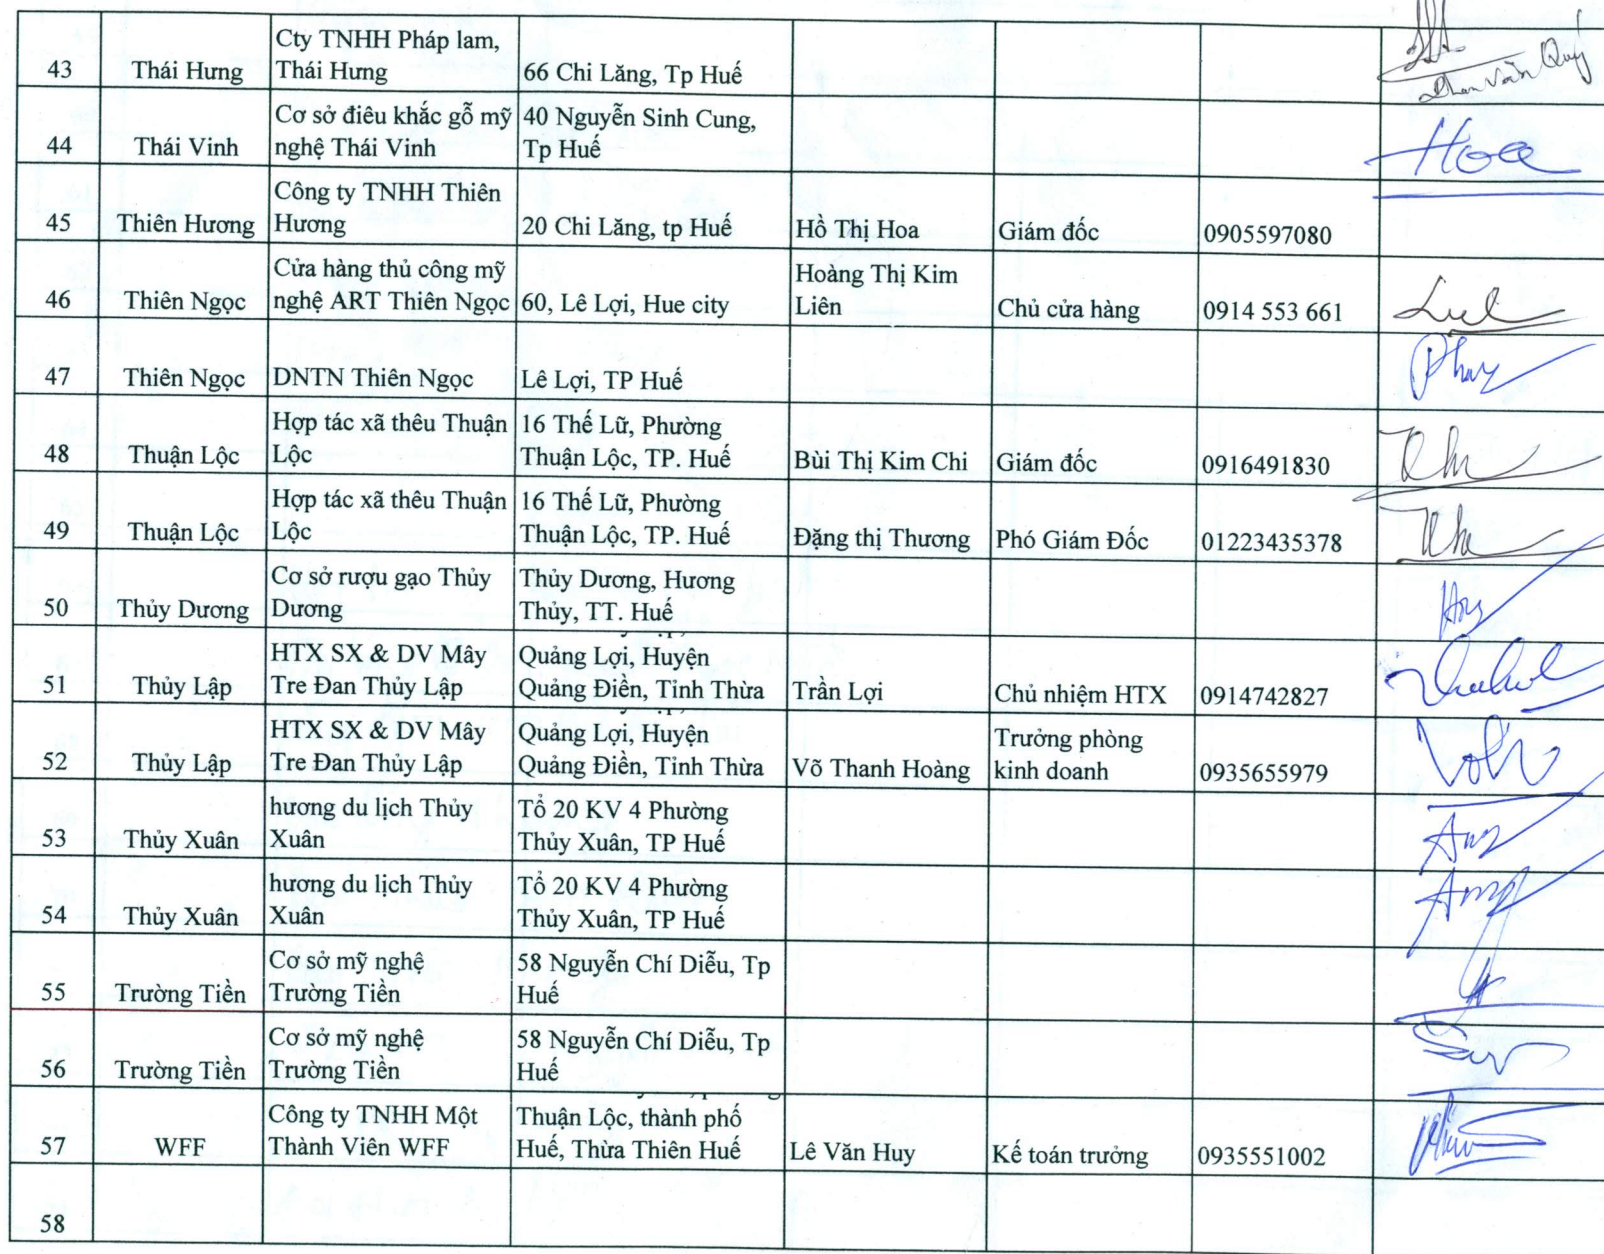 43 Thái Hưng Cty TNHH Pháp lam, Thái Hưng 66 Chi Lăng, Tp Huế Phan Văn Quý
44 Thái Vinh Cơ sở điêu khắc gỗ mỹ nghệ Thái Vinh 40 Nguyễn Sinh Cung, Tp Huế Hoa
45 Thiên Hương Công ty TNHH Thiên Hương 20 Chi Lăng, tp Huế Hồ Thị Hoa Giám đốc 0905597080
46 Thiên Ngọc Cửa hàng thủ công mỹ nghệ ART Thiên Ngọc 60, Lê Lợi, Hue city Hoàng Thị Kim Liên Chủ cửa hàng 0914 553 661
47 Thiên Ngọc DNTN Thiên Ngọc Lê Lợi, TP Huế
48 Thuận Lộc Hợp tác xã thêu Thuận Lộc 16 Thế Lữ, Phường Thuận Lộc, TP. Huế Bùi Thị Kim Chi Giám đốc 0916491830
49 Thuận Lộc Hợp tác xã thêu Thuận Lộc 16 Thế Lữ, Phường Thuận Lộc, TP. Huế Đặng thị Thương Phó Giám Đốc 01223435378
50 Thủy Dương Cơ sở rượu gạo Thủy Dương Thủy Dương, Hương Thủy, TT. Huế
51 Thủy Lập HTX SX & DV Mây Tre Đan Thủy Lập Quảng Lợi, Huyện Quảng Điền, Tỉnh Thừa Trần Lợi Chủ nhiệm HTX 0914742827
52 Thủy Lập HTX SX & DV Mây Tre Đan Thủy Lập Quảng Lợi, Huyện Quảng Điền, Tỉnh Thừa Võ Thanh Hoàng Trưởng phòng kinh doanh 0935655979
53 Thủy Xuân hương du lịch Thủy Xuân Tổ 20 KV 4 Phường Thủy Xuân, TP Huế
54 Thủy Xuân hương du lịch Thủy Xuân Tổ 20 KV 4 Phường Thủy Xuân, TP Huế
55 Trường Tiền Cơ sở mỹ nghệ Trường Tiền 58 Nguyễn Chí Diễu, Tp Huế
56 Trường Tiền Cơ sở mỹ nghệ Trường Tiền 58 Nguyễn Chí Diễu, Tp Huế
57 WFF Công ty TNHH Một Thành Viên WFF Thuận Lộc, thành phố Huế, Thừa Thiên Huế Lê Văn Huy Kế toán trưởng 0935551002
58